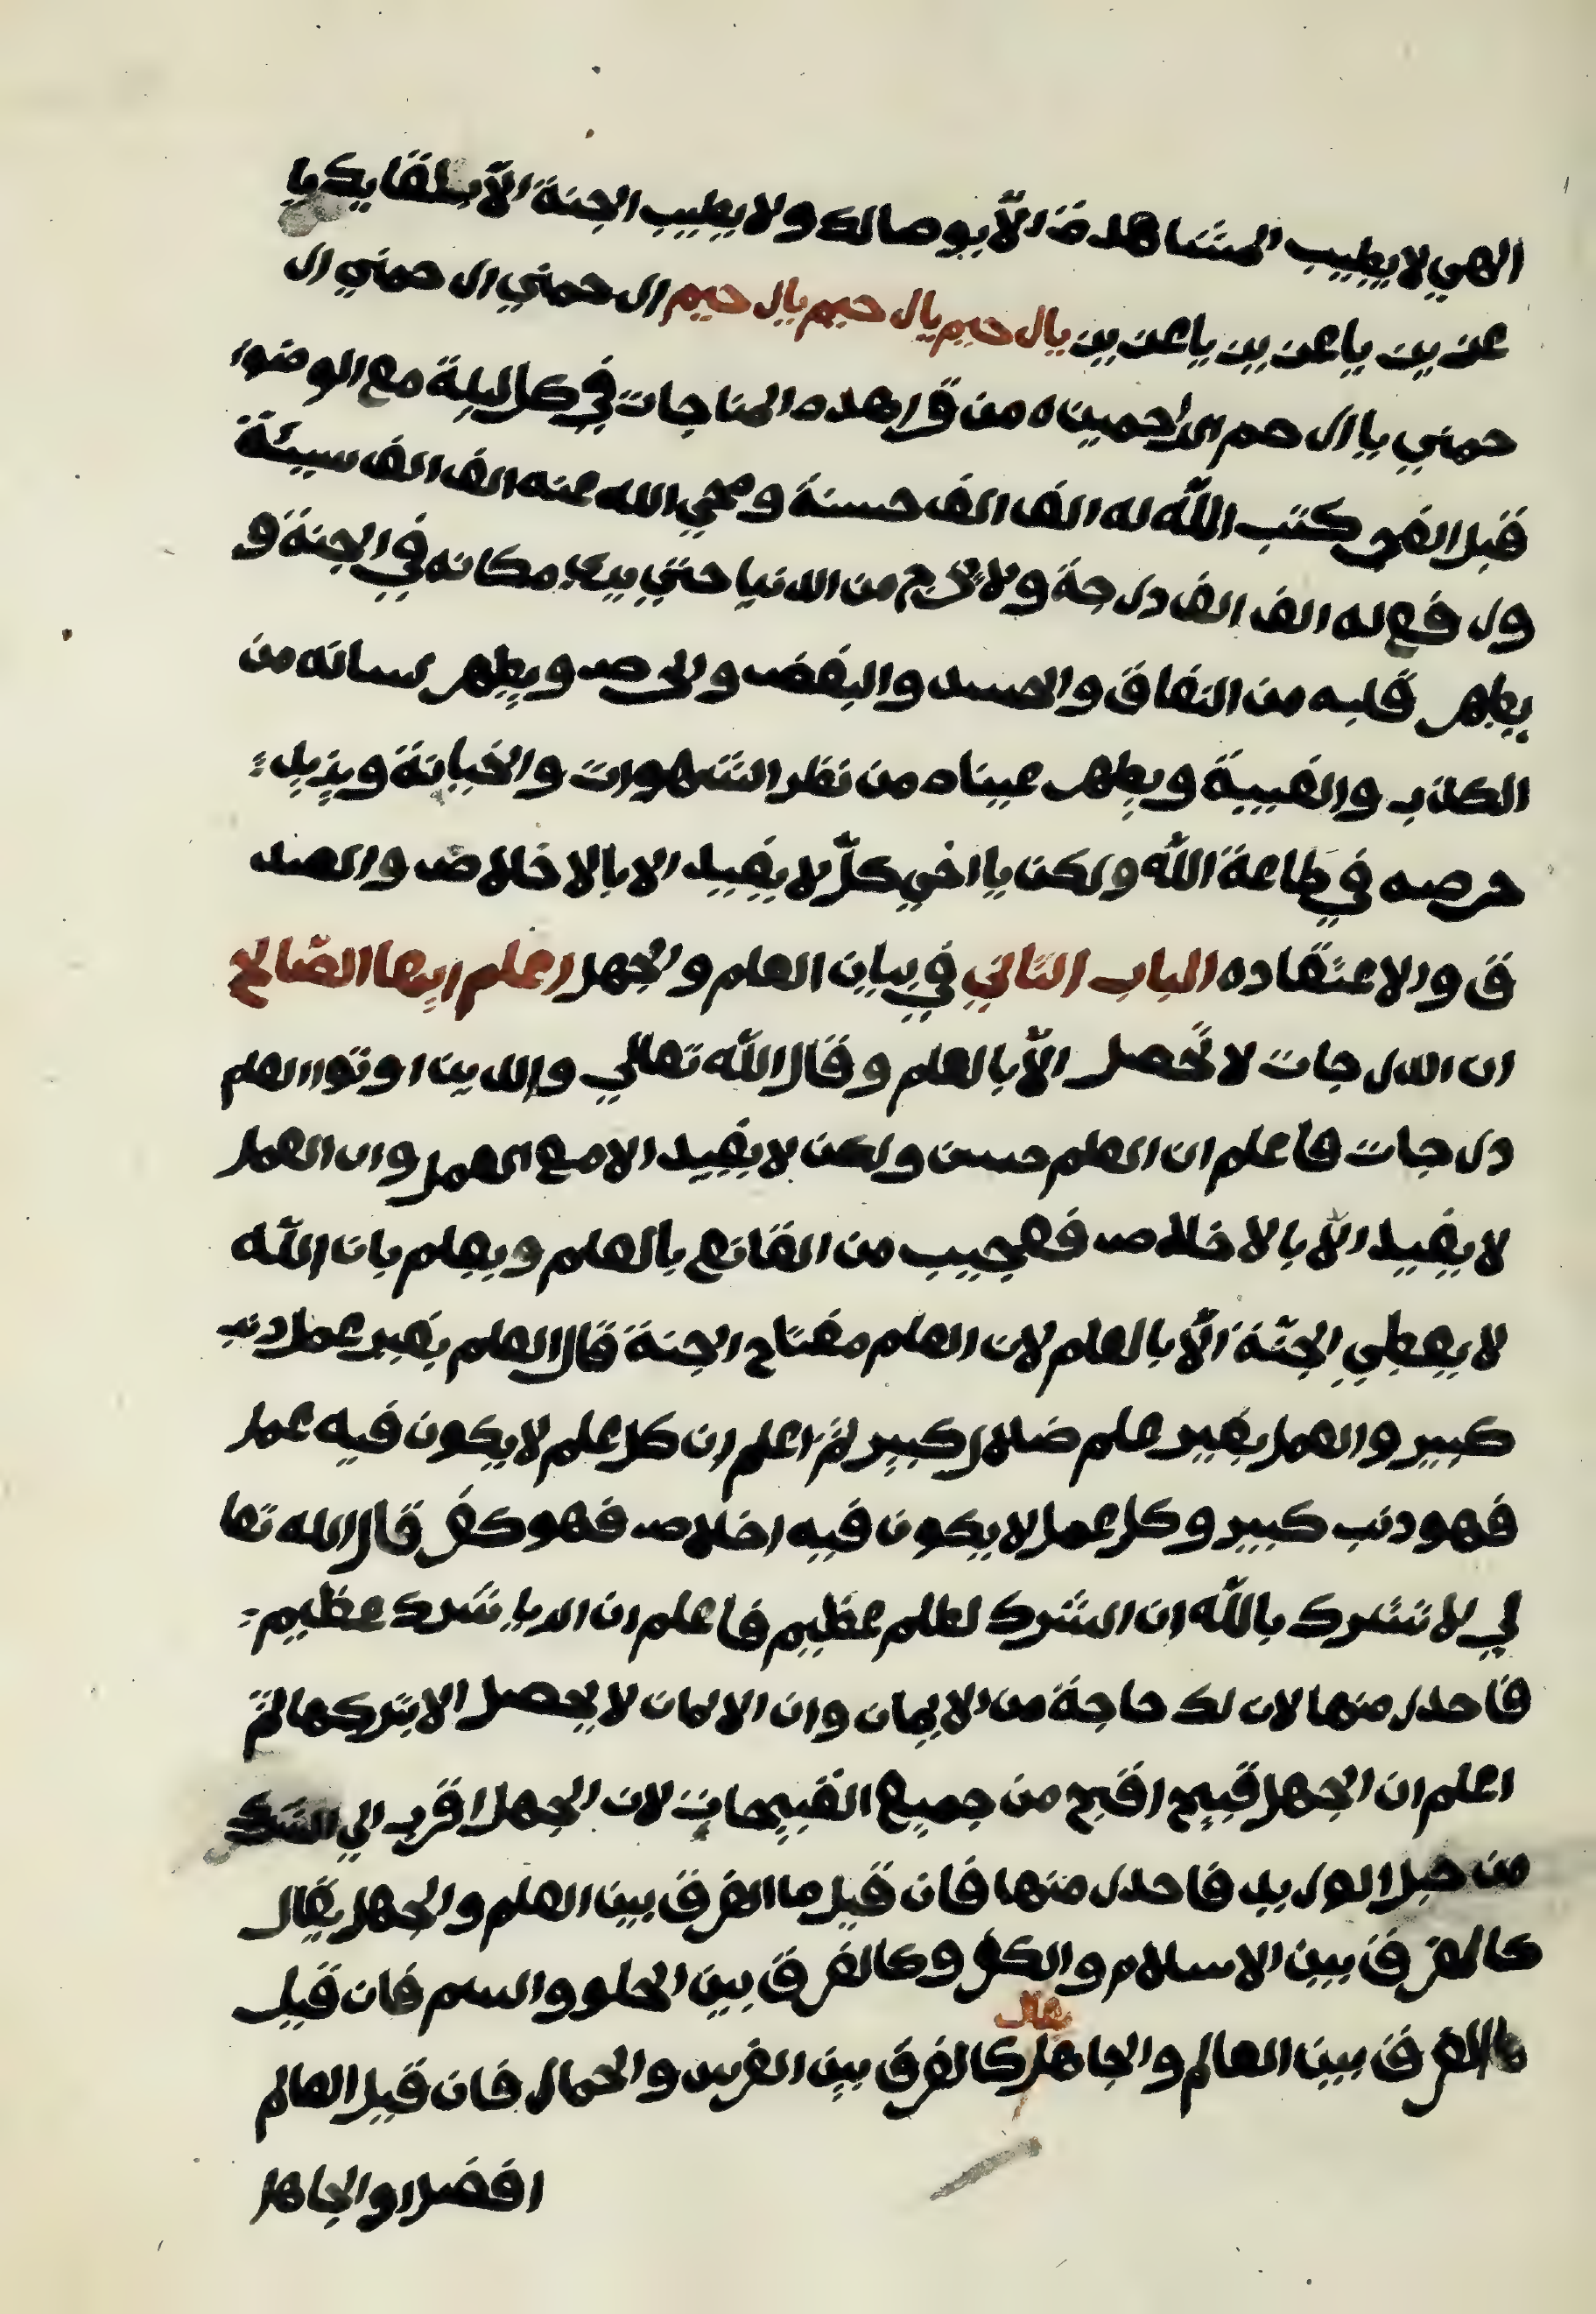 الهي لا يطيب المشاهدة الّا بوصالك ولا يطيب الجنة الّا بلقايك يا
عزيز يا عزيز يا عزيز يا رحيم يا رحيم يا رحيم ارحمني ارحمني ار
حمني يا ارحم الراحمين ٥ من قرا هذه المناجات في كل ليلة مع الوضوء
قبل الفجر كتب الله له الف الف حسنة ومحي الله عنه الف الف سيئة
ورفع له الف الف درجة ولا يخرج من الدنيا حتي يرى مكانه في الجنة و
يطهر قلبه من النفاق والحسد والبغض والحرص ويطهر لسانه من
الكذب والغيبة ويطهر عيناه من نظر الشهوات والخيانة ويزيد
حرصه في طاعة الله ولكن يا اخي كلّ لا يفيد الا بالاخلاص والصد
ق والاعتقاد ٥ الباب الثاني في بيان العلم والجهل اعلم ايها الصّالح
ان الدرجات لا تحصل الّا بالعلم وقال الله تعالي والذين اوتوا العلم
درجات فاعلم ان العلم حسن ولكن لا يفيد الا مع العمل وان العمل
لا يفيد الّا بالاخلاص فعجيب من القانع بالعلم ويعلم بان الله
لا يعطي الجنّة الّا بالعلم لان العلم مفتاح الجنة قال العلم بغير عمل ذنب
كبير والعمل بغير علم ضلال كبير ثمّ اعلم ان كل علم لا يكون فيه عمل
فهو ذنب كبير وكل عمل لا يكون فيه اخلاص فهو كفر قال الله تعا
لي لا تشرك بالله ان الشرك لظلم عظيم فاعلم ان الريا شرك عظيم
فاحذر منها لان لك حاجة من الايمان وان الايمان لا يحصل الا بتركها ثمّ
اعلم ان الجهل قبيح اقبح من جميع القبيحات لان الجهل اقرب الي الشرك
من حبل الوريد فاحذر منها فان قيل ما الفرق بين العلم والجهل يقال
كالفرق بين الاسلام والكفر وكالفرق بين الحلو والسم فان قيل
ما الفرق بين العالم والجاهل يقال كالفرق بين الفرس والحمار فان قيل العالم
افضل او الجاهل